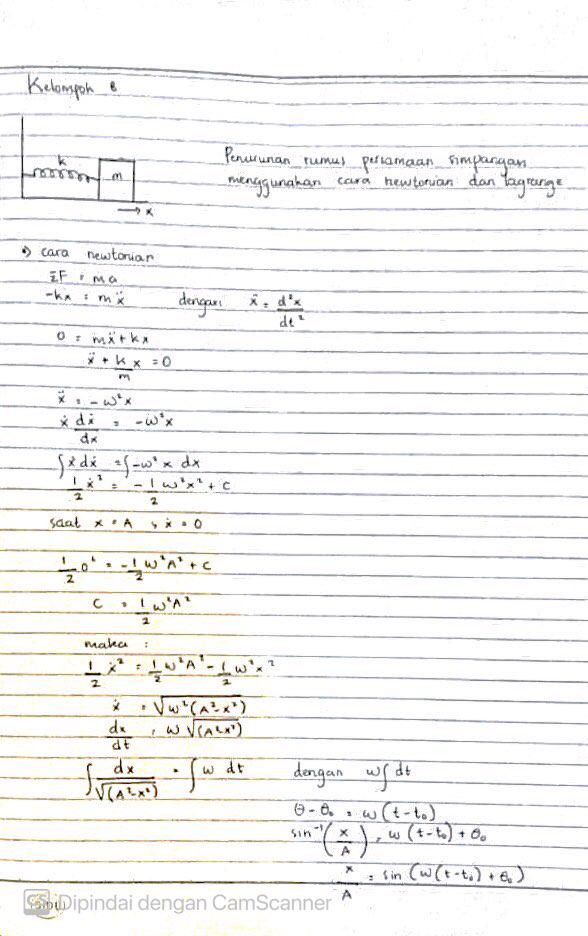 Kelompok 8
k
m
x
Penurunan rumus persamaan simpangan
menggunakan cara newtonian dan lagrange
•) cara newtonian
ΣF = ma
-kx = mẍ dengan ẍ = d²x/dt²
0 = mẍ + kx
ẍ + k/m x = 0
ẍ = -ω²x
ẋ dẋ/dx = -ω²x
∫ẋ dẋ = ∫-ω² x dx
1/2 ẋ² = -1/2 ω²x² + C
saat x = A , ẋ = 0
1/2 0² = -1/2 ω²A² + C
C = 1/2 ω²A²
maka :
1/2 ẋ² = 1/2 ω²A² - 1/2 ω²x²
ẋ = √(ω²(A²-x²))
dx/dt = ω √(A²-x²)
∫ dx/√(A²-x²) = ∫ω dt dengan ω∫dt
θ-θ₀ = ω(t-t₀)
sin⁻¹(x/A) = ω(t-t₀) + θ₀
x/A = sin(ω(t-t₀) + θ₀)
CS Dipindai dengan CamScanner